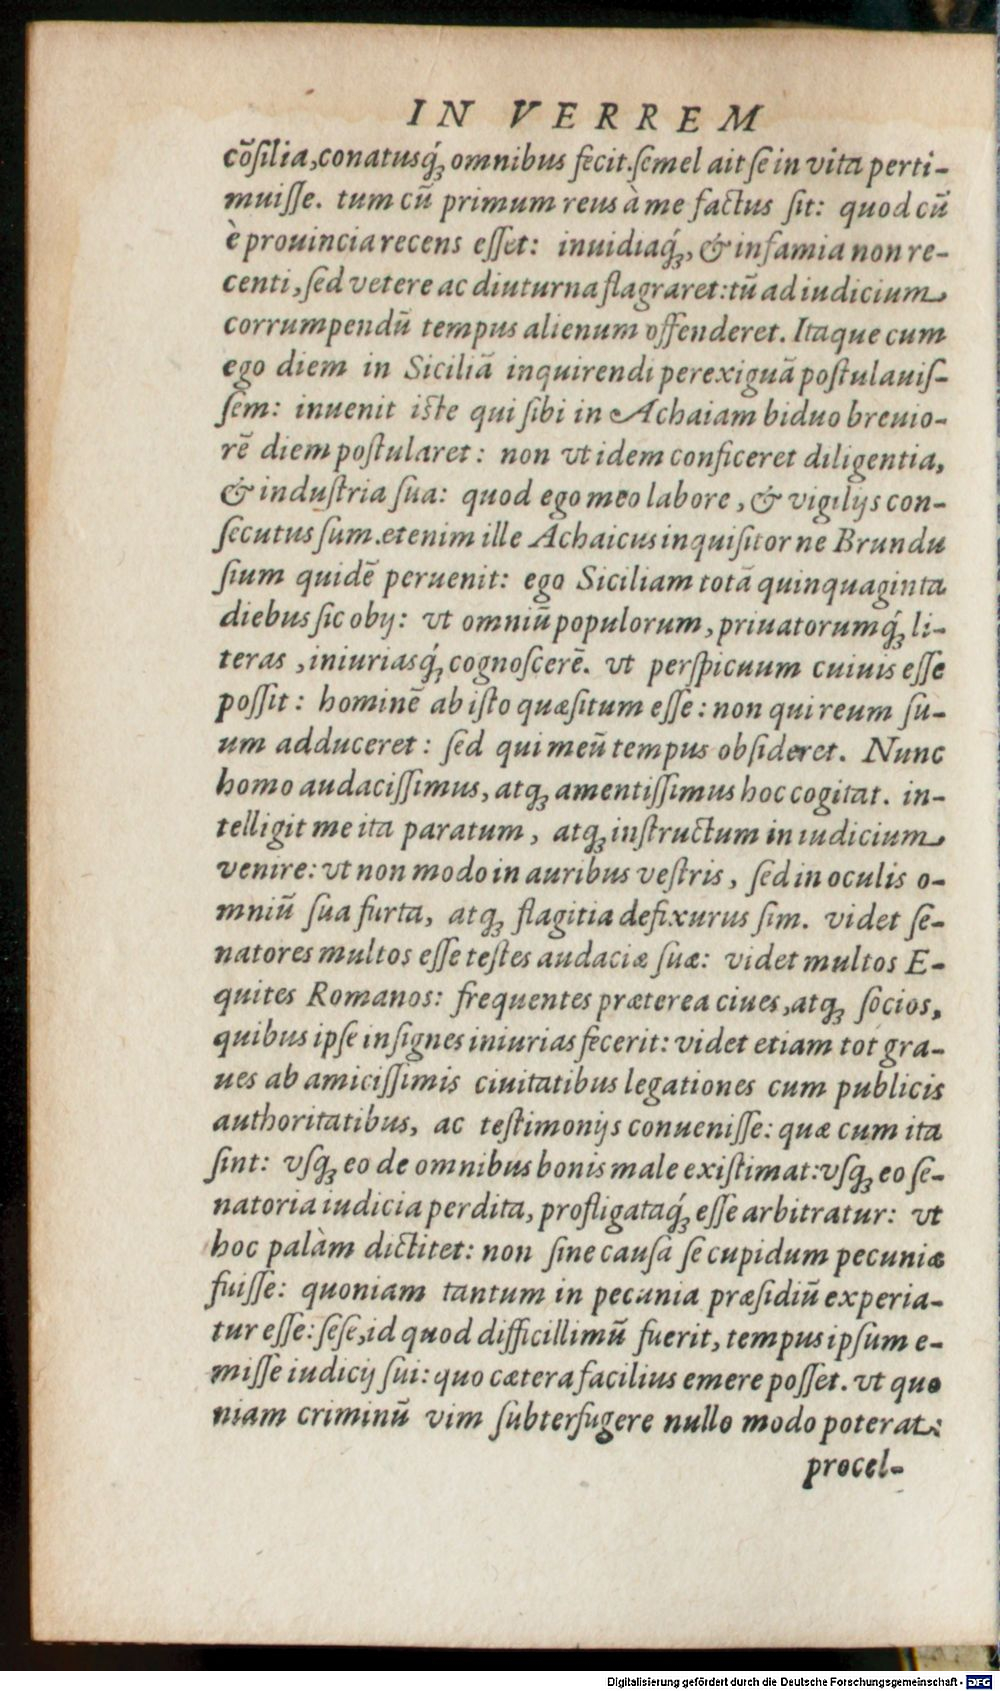 IN VERREM
cõſilia, conatusq́ꝫ omnibus fecit. ſemel ait ſe in vita perti-
muiſſe. tum cũ primum reus à me factus ſit: quod cũ
è prouincia recens eſſet: inuidiaq́ꝫ, & infamia non re-
centi, ſed vetere ac diuturna flagraret: tũ ad iudicium
corrumpendũ tempus alienum offenderet. Itaque cum
ego diem in Siciliã inquirendi perexiguã poſtulauiſ-
ſem: inuenit iſte qui ſibi in Achaiam biduo breuio-
rẽ diem poſtularet: non vt idem conficeret diligentia,
& induſtria ſua: quod ego meo labore, & vigilijs con-
ſecutus ſum. etenim ille Achaicus inquiſitor ne Brundu
ſium quidẽ peruenit: ego Siciliam totã quinquaginta
diebus ſic obij: vt omniũ populorum, priuatorumq́ꝫ li-
teras, iniuriasq́ꝫ cognoſcerẽ. vt perſpicuum cuiuis eſſe
poſſit: hominẽ ab iſto quæſitum eſſe: non qui reum ſu-
um adduceret: ſed qui meũ tempus obſideret. Nunc
homo audaciſſimus, atqꝫ amentiſſimus hoc cogitat. in-
telligit me ita paratum, atqꝫ inſtructum in iudicium
venire: vt non modo in auribus veſtris, ſed in oculis o-
mniũ ſua furta, atqꝫ flagitia defixurus ſim. videt ſe-
natores multos eſſe teſtes audaciæ ſuæ: videt multos E-
quites Romanos: frequentes præterea ciues, atqꝫ ſocios,
quibus ipſe inſignes iniurias fecerit: videt etiam tot gra-
ues ab amiciſſimis ciuitatibus legationes cum publicis
authoritatibus, ac teſtimonijs conueniſſe: quæ cum ita
ſint: vſqꝫ eo de omnibus bonis male exiſtimat: vſqꝫ eo ſe-
natoria iudicia perdita, profligataq́ꝫ eſſe arbitratur: vt
hoc palàm dictitet: non ſine cauſa ſe cupidum pecuniæ
fuiſſe: quoniam tantum in pecunia præſidiũ experia-
tur eſſe: ſeſe, id quod difficillimũ fuerit, tempus ipſum e-
miſſe iudicij ſui: quo cætera facilius emere poſſet. vt quo
niam criminũ vim ſubterfugere nullo modo poterat:
procel-
Digitalisierung gefördert durch die Deutsche Forschungsgemeinschaft - DFG